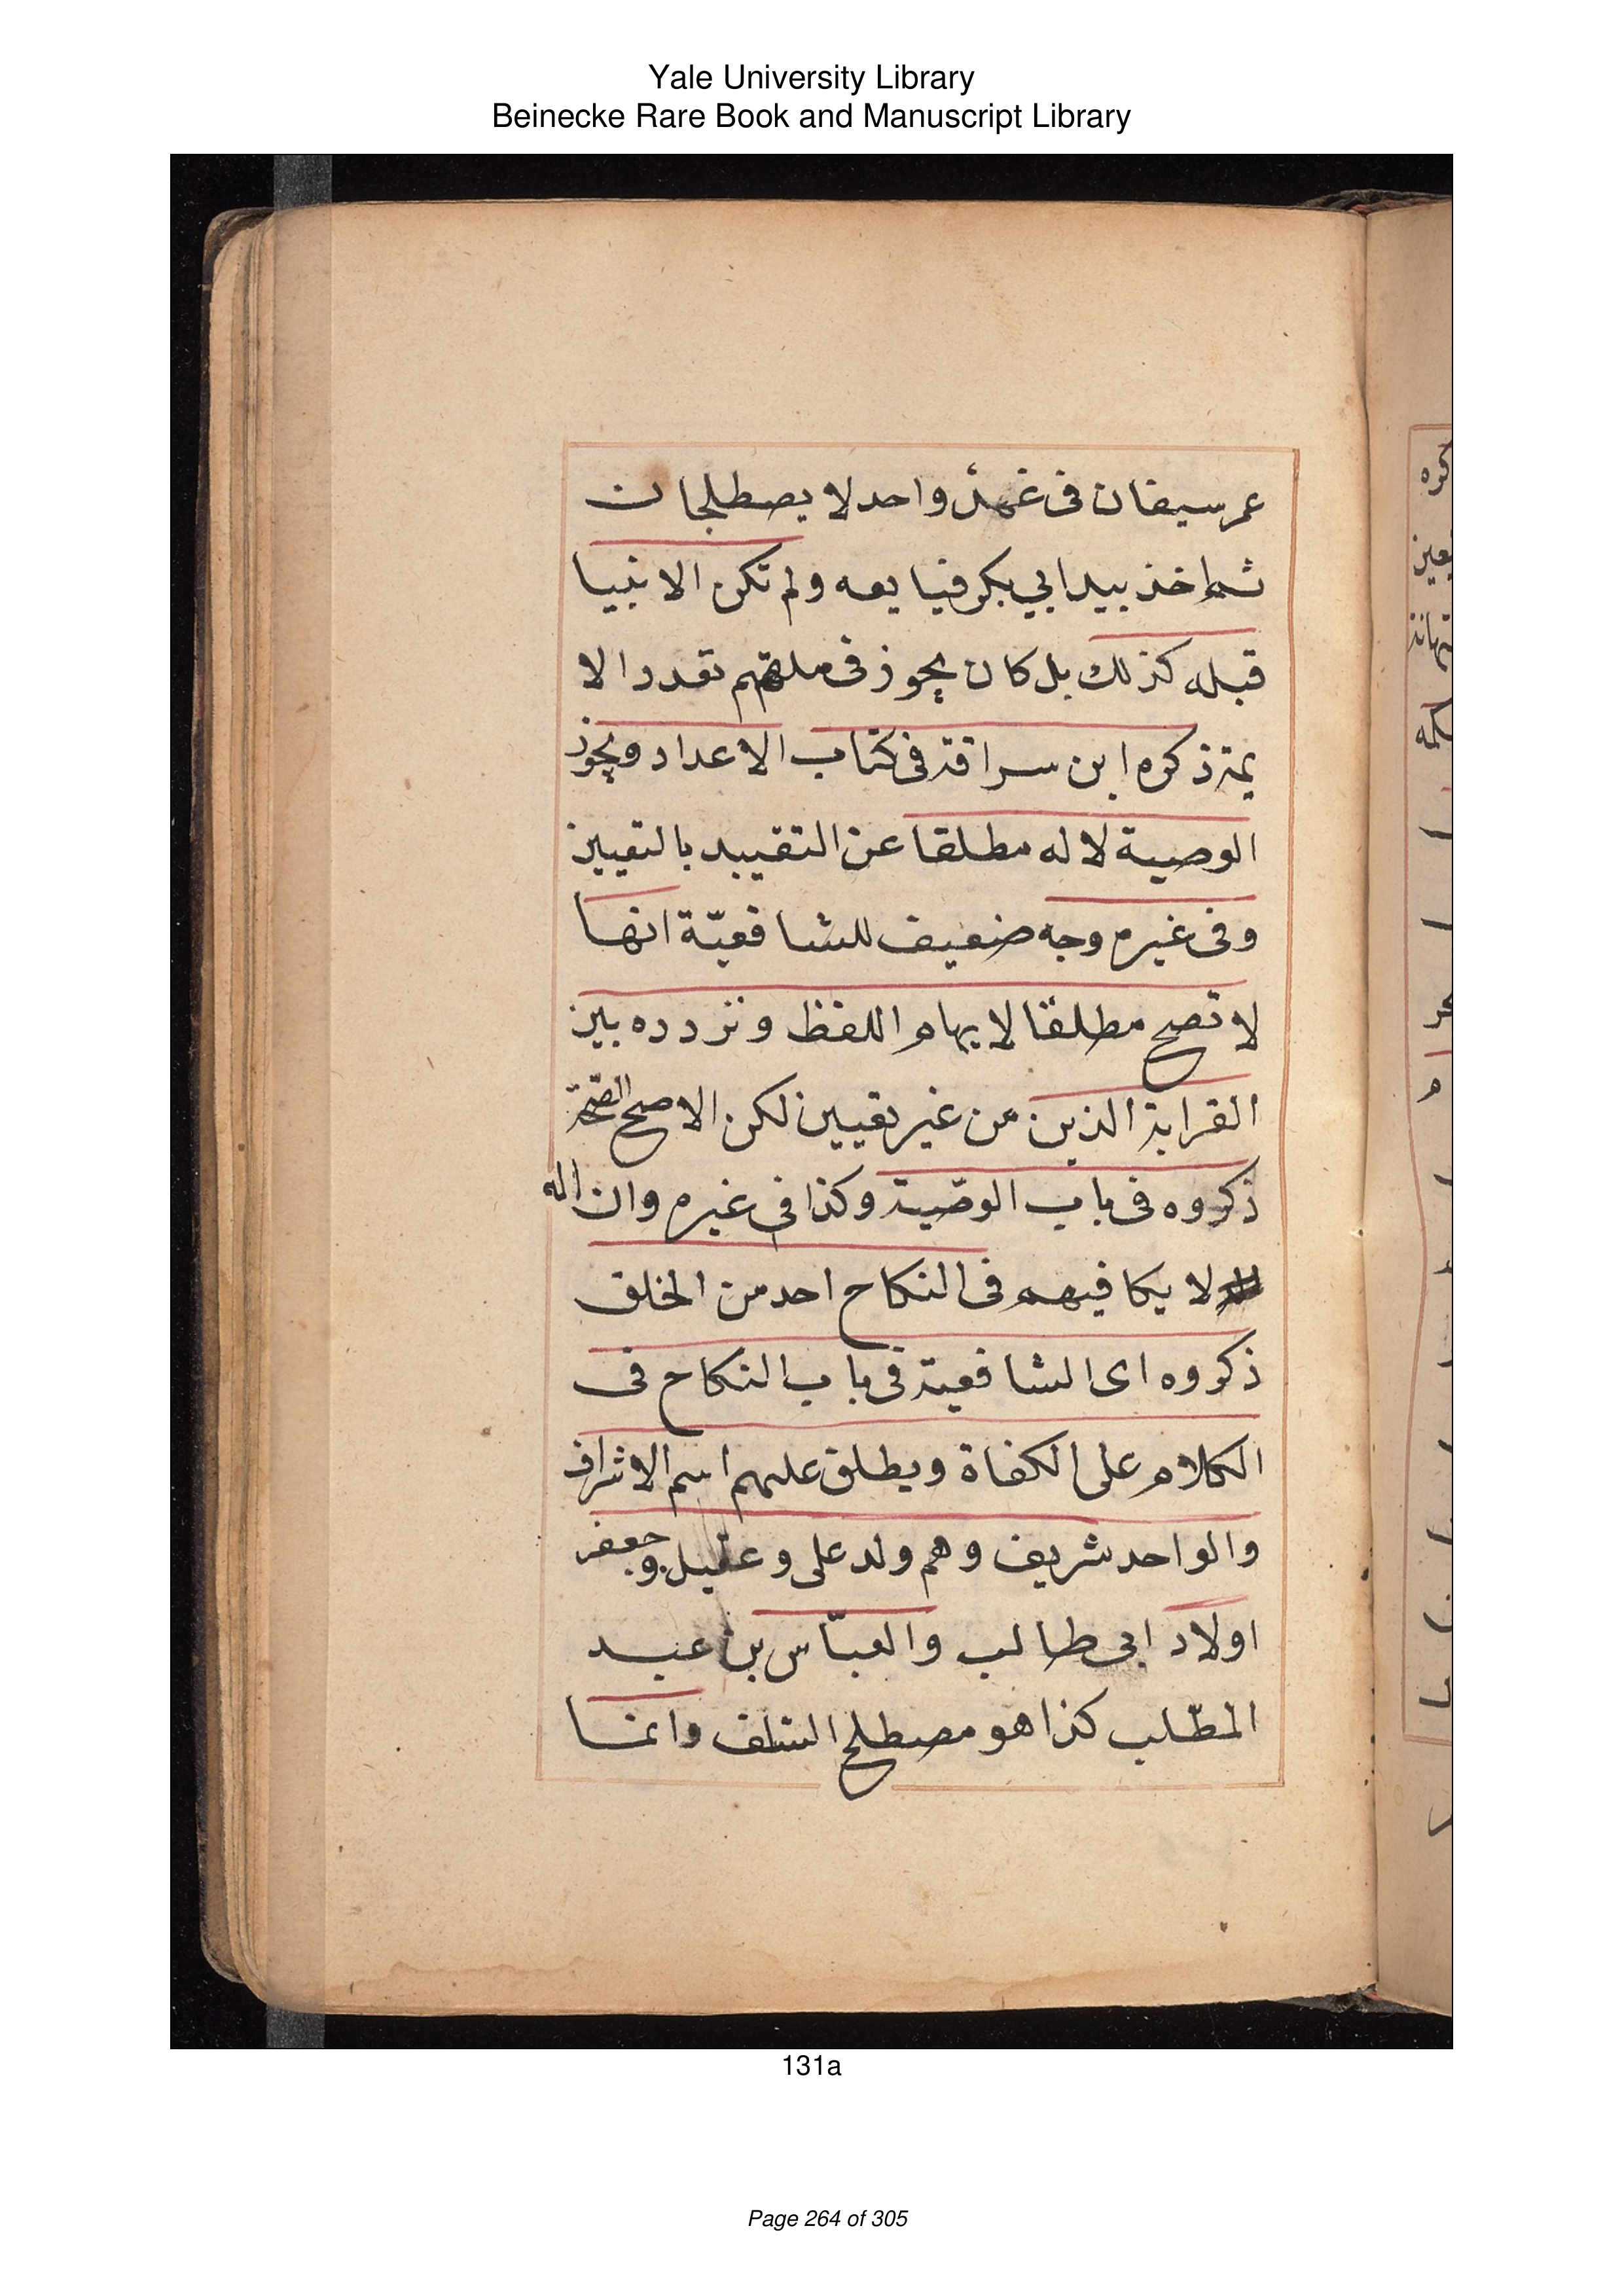 Yale University Library
Beinecke Rare Book and Manuscript Library
عمر سيفان فى غمد واحد لا يصطلجان
ثم اخذ بيد ابي بكر فبايعه ولم تكن الانبيا
قبله كذلك بل كان يجوز فى ملتهم تعدد الا
يمة ذكره ابن سراقة فى كتاب الاعداد ويجوز
الوصية لاله مطلقا عن التقييد بالتعيين
وفى غيرم وجه ضعيف للشافعيّة انها
لا تصح مطلقا لابهام اللفظ وتردده بين
القرابة الذين من غير تعيين لكن الاصح الصّحة
ذكروه فى باب الوصّية وكذا فى غيرم وان اله
لا يكافيهم فى النكاح احد من الخلق
ذكروه اى الشافعية فى باب النكاح فى
الكلام على الكفاة ويطلق عليهم اسم الاشراف
والواحد شريف وهم ولد على وعقيل وجعفر
اولاد ابى طالب والعبّاس بن عبد
المطّلب كذا هو مصطلح السّلف وانما
كره
131a
Page 264 of 305